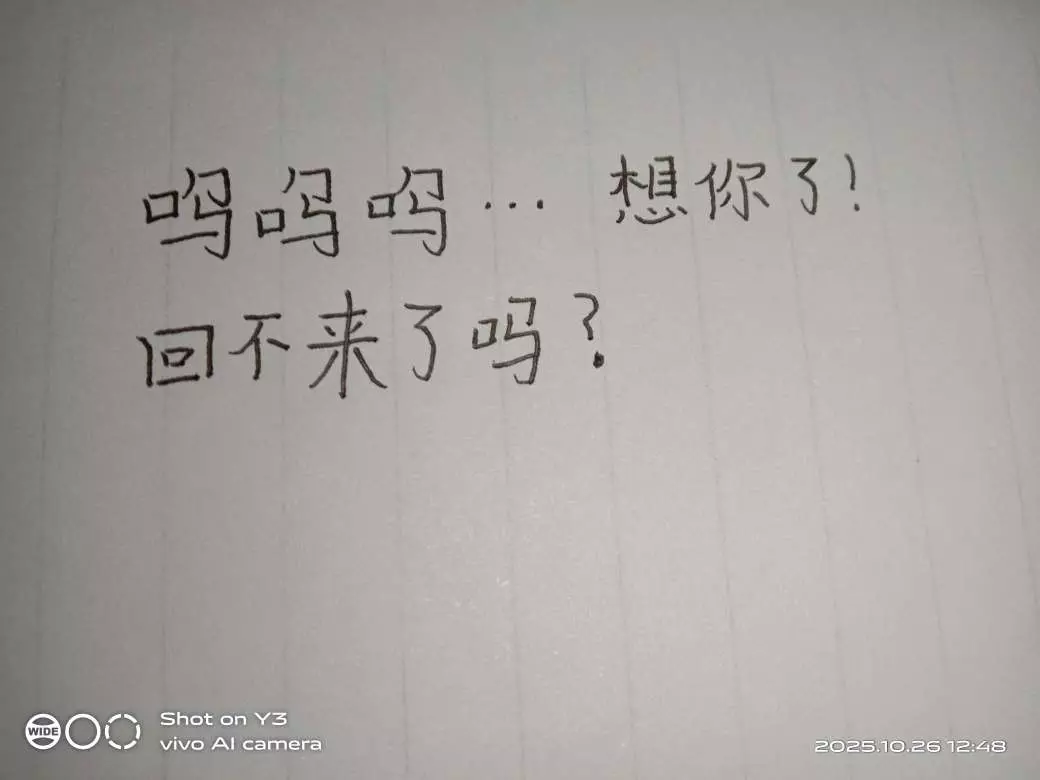 呜呜呜… 想你了!
回不来了吗?
WIDE
Shot on Y3
vivo AI camera
2025.10.26 12:48